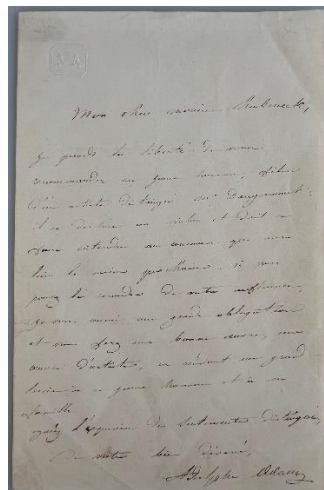 AA
Mon cher monsieur Habeneck,
Je prends la liberté de vous
recommander un jeune homme, fils
d'un artiste distingué
il se destine au violon et doit se
faire entendre au concours qui aura
lieu la semaine prochaine. si vous
pouvez lui accorder de votre influence,
je vous aurai une grande obligation
et vous ferez une bonne œuvre, une
œuvre d'artiste, en rendant un grand
service à ce jeune homme et à sa
famille
agréez l'expression des sentiments distingués,
de votre bien dévoué,
Adolphe Adam